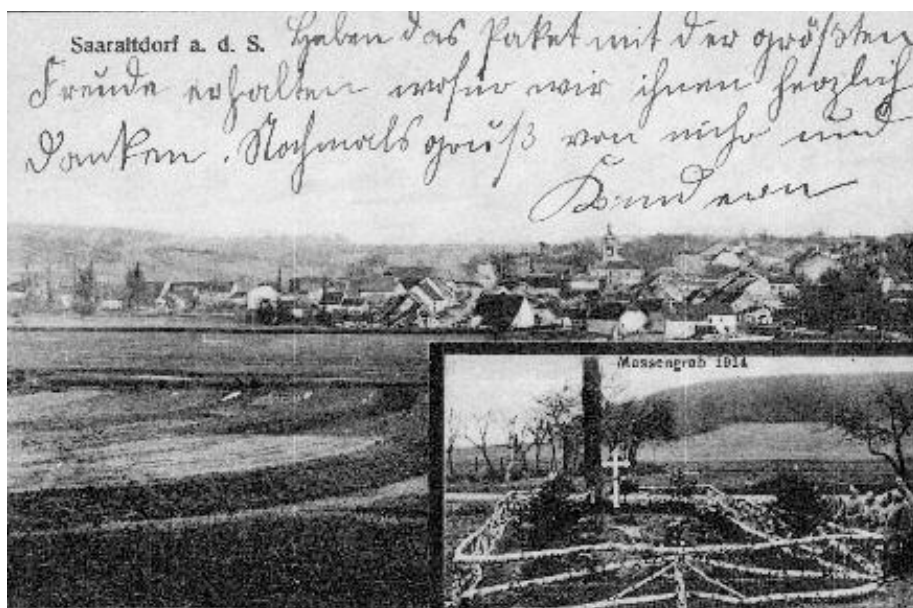 Saaraltdorf a. d. S.
Haben das Paket mit der größten
Freude erhalten wofür wir ihnen herzlich
Danken. Nochmals gruß von und
Kindern
Massengrab 1914